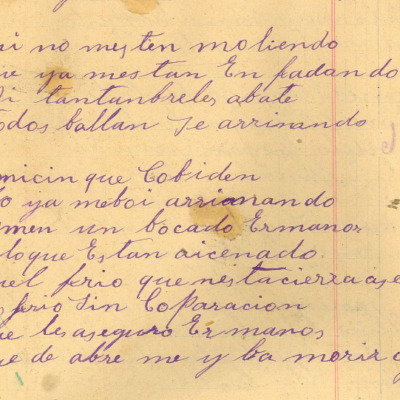 si no mesten moliendo
ue ya mestan En fadando
di tantanbreles abate
odos ballan se arrinando
micin que Cobiden
o ya meboi arrinando
men un bocado Ermanos
loque Estan aicenado
uel frio que nestacierra ase
frio Sin Coparacion
ue les aseguro Ermanos
ue de abre me y ba morir